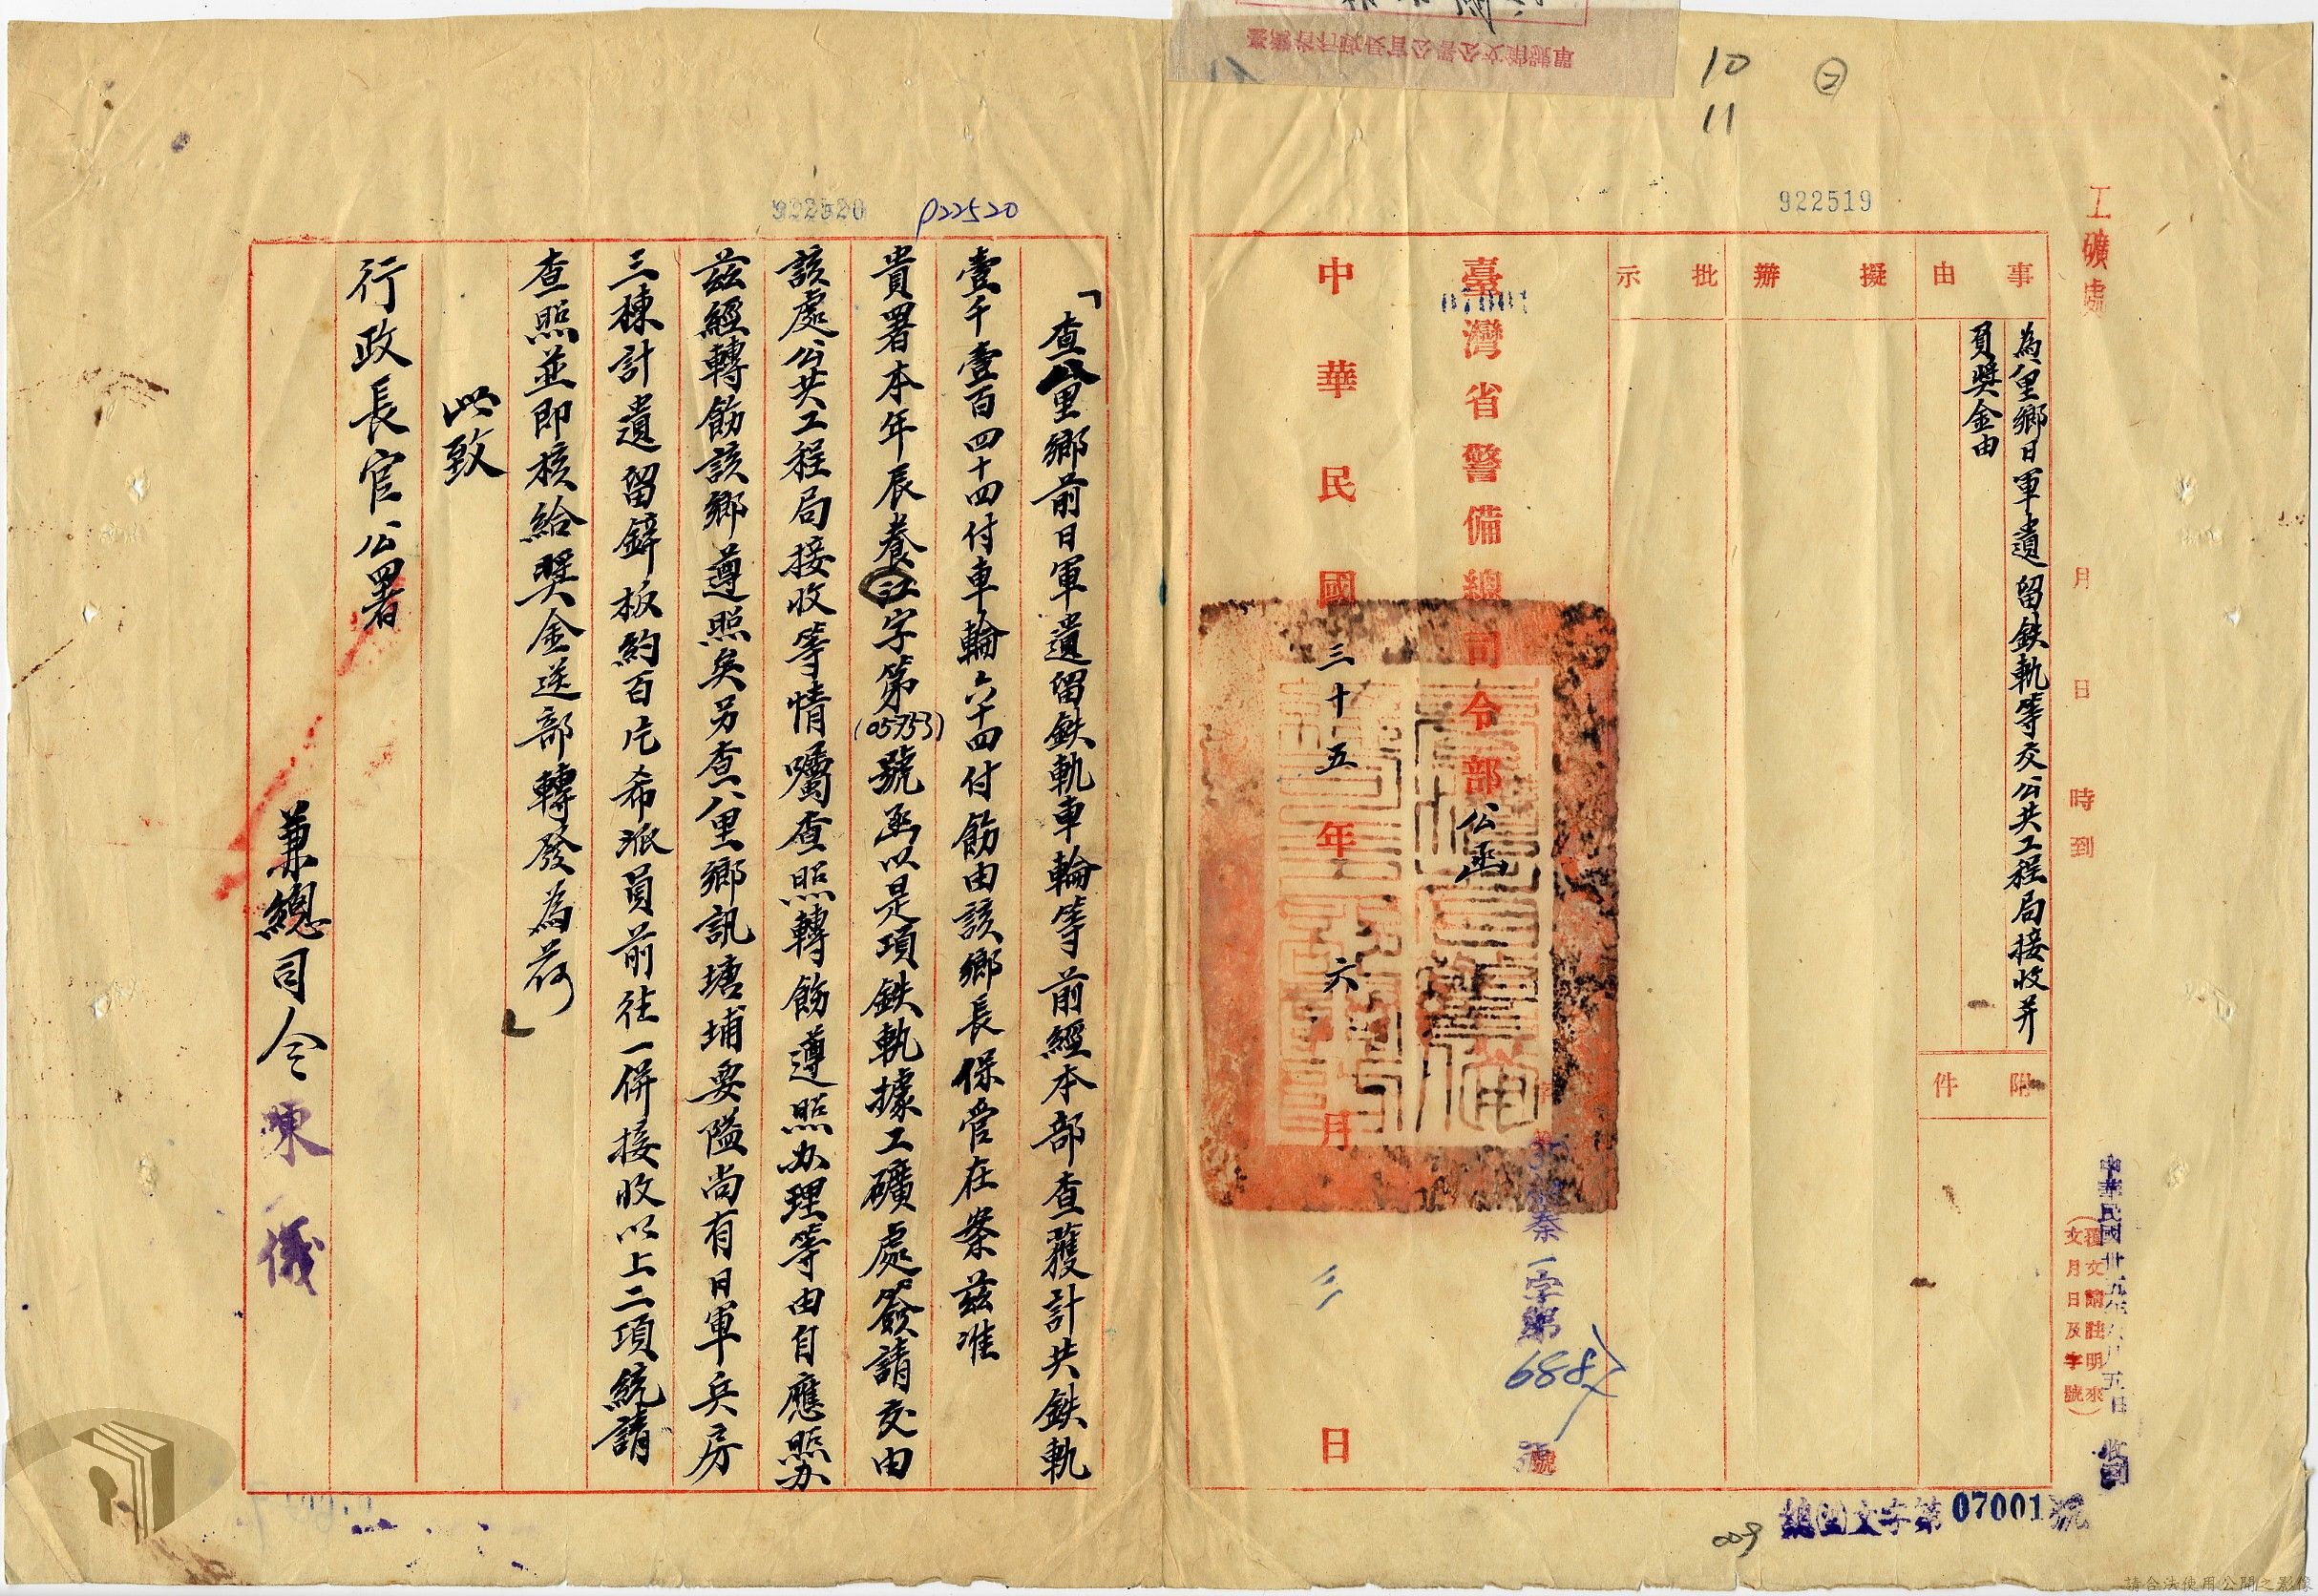 工礦處
月 日 時到
(覆文請註明來
文月日及字號)
中華民國卅五年六月五日
總收文字第07001號
009
922519
10
11
事由
為八里鄉日軍遺留鉄軌等交公共工程局接收并
頁獎金由
附件
擬辦
批示
臺灣省警備總司令部公函
07001
秦一字第6887號
中華民國三十五年六月三日
922520
P22520
「查八里鄉前日軍遺留鉄軌車輪等前經本部查獲計共鉄軌
壹千壹百四十四付車輪六十四付飭由該鄉長保管在案茲准
貴署本年辰養江字第(05753)號函以是項鉄軌據工礦處簽請交由
該處公共工程局接收等情囑查照轉飭遵照办理等由自應照办
茲經轉飭該鄉遵照矣另查八里鄉訊塘埔要隘尚有日軍兵房
三棟計遺留鋅板約百片希派員前往一併接收以上二項統請
查照並即核給獎金送部轉發為荷」
此致
行政長官公署
兼總司令陳儀
請合法使用公開之影像